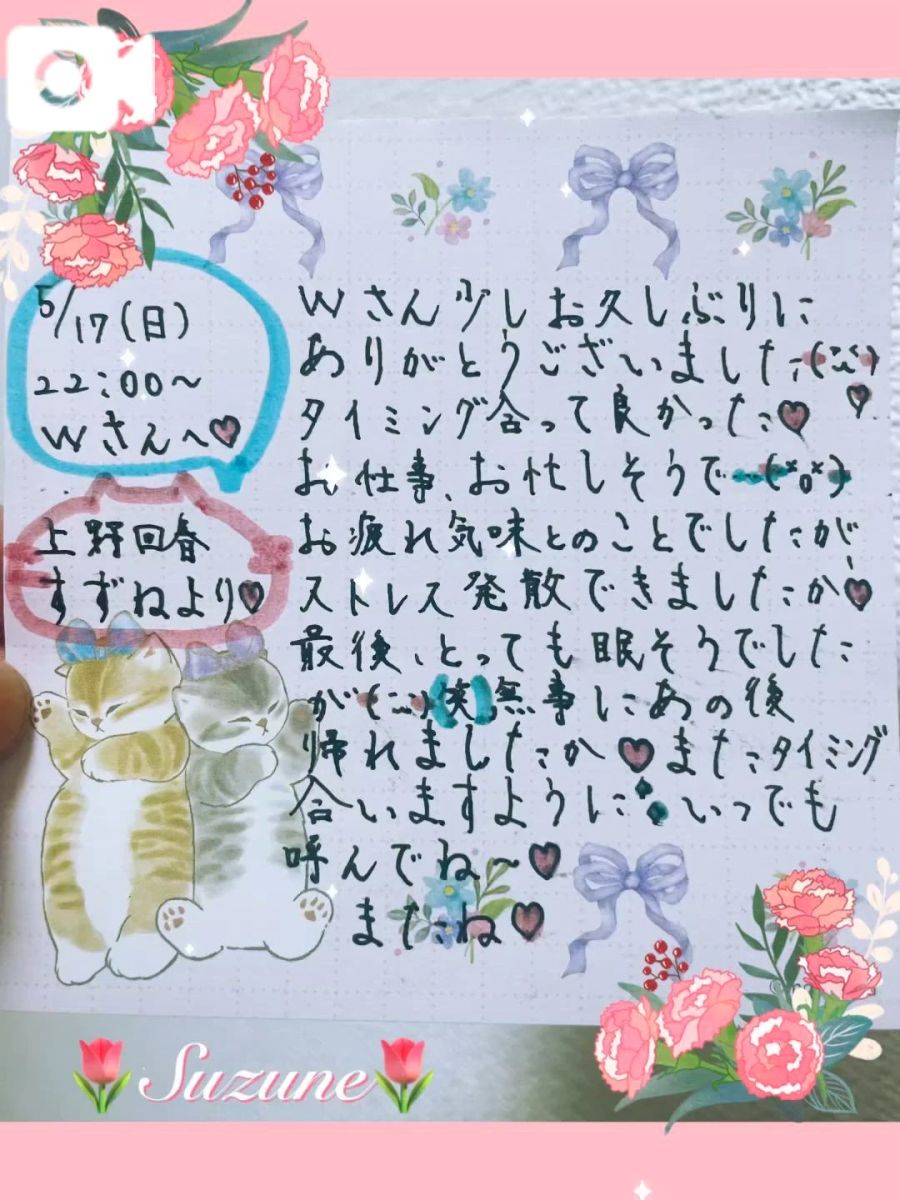 5/17(日)
22:00〜
Wさんへ♡
上野回春
すずねより♡
Wさん少しお久しぶりに
ありがとうございました
タイミング合って良かった♡
お仕事、お忙しそうで
お疲れ気味とのことでしたが
ストレス発散できましたか♡
最後、とっても眠そうでした
が(笑)無事にあの後
帰れましたか♡またタイミング
合いますように いつでも
呼んでね〜♡
またね♡
Suzune